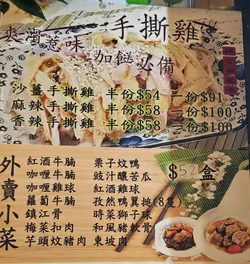 爽滑惹味 手撕雞
加餸必備
沙薑手撕雞 半份$54 一份$91
麻辣手撕雞 半份$58 一份$100
香辣手撕雞 半份$58 一份$100
外賣小菜
$52盒
紅酒牛腩 栗子炆鴨
咖喱牛腩 豉汁釀苦瓜
咖喱雞球 紅酒雞球
蘿蔔牛腩 孜然鴨翼挑(8隻)
鎮江骨 時菜獅子球
梅菜扣肉 和風豬軟骨
芋頭炆豬肉 東坡肉